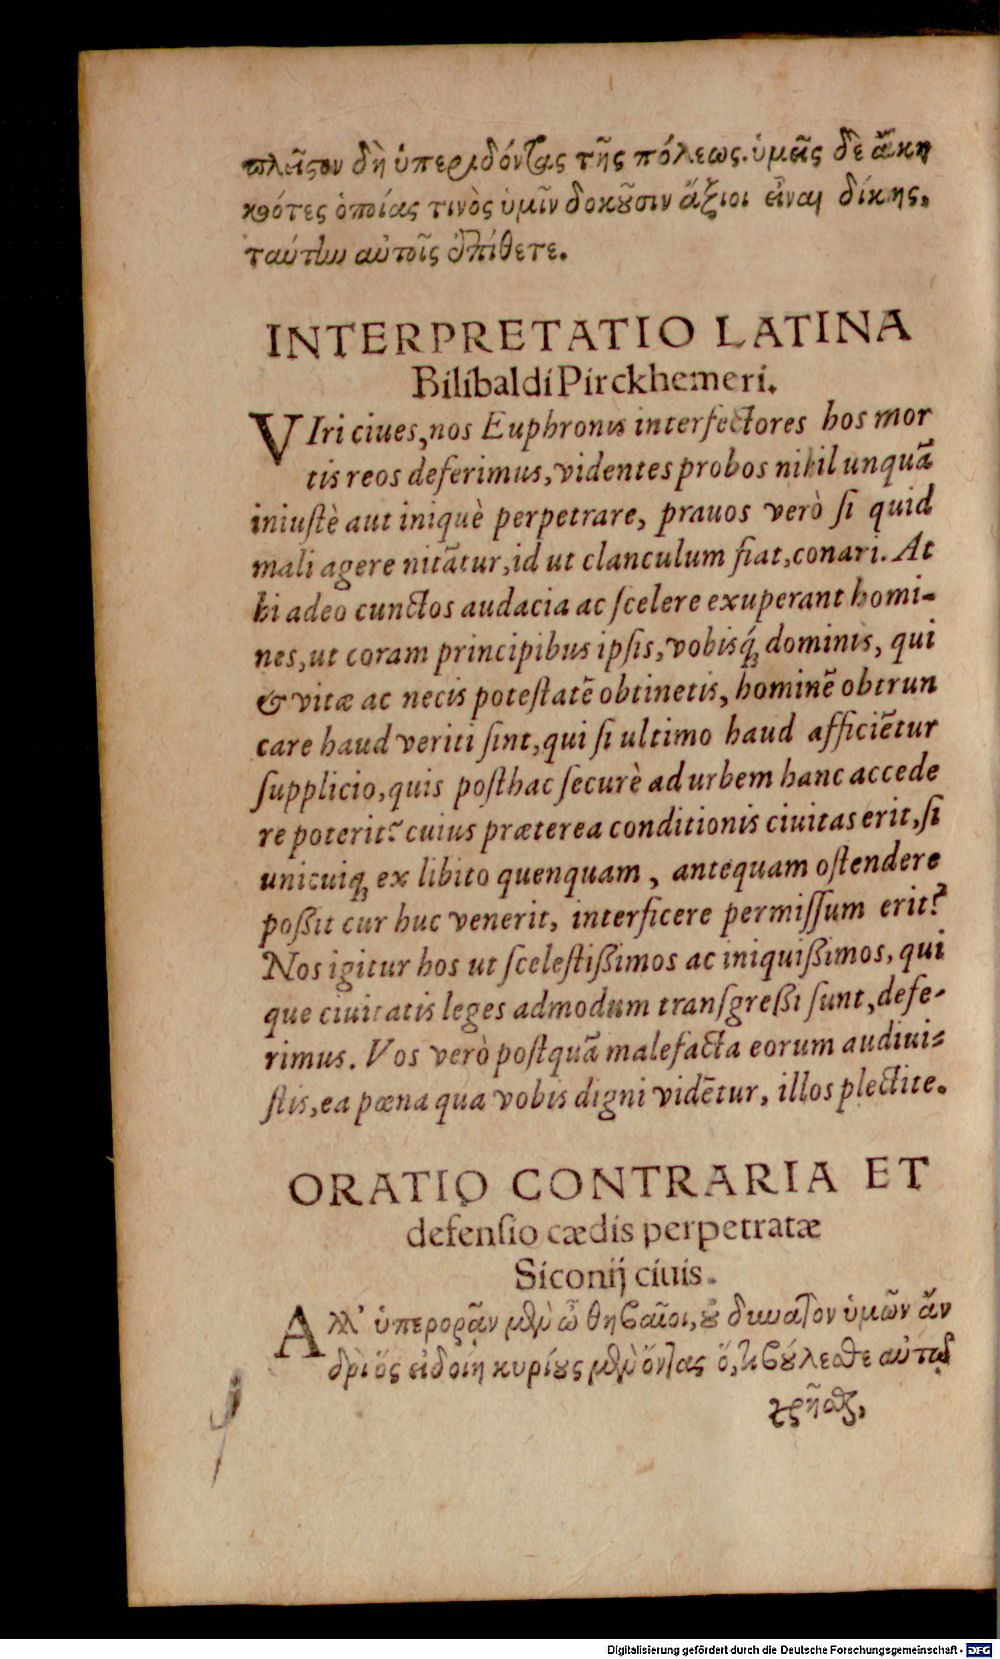 πλεῖστον δὴ ὑπεριδόντας τῆς πόλεως. ὑμεῖς δὲ ἀκη
κοότες ὁποίας τινὸς ὑμῖν δοκοῦσιν ἄξιοι εἶναι δίκης,
ταύτην αὐτοῖς ἐπίθετε.
INTERPRETATIO LATINA
Bilibaldi Pirckhemeri.
VIri ciues, nos Euphronis interfectores hos mor
tis reos deferimus, videntes probos nihil unquā
iniustè aut iniquè perpetrare, prauos verò si quid
mali agere nitātur, id ut clanculum fiat, conari. At
hi adeo cunctos audacia ac scelere exuperant homi-
nes, ut coram principibus ipsis, vobisq́; dominis, qui
& vitæ ac necis potestatē obtinetis, hominē obtrun
care haud veriti sint, qui si ultimo haud afficiētur
supplicio, quis posthac securè ad urbem hanc accede
re poterit? cuius præterea conditionis ciuitas erit, si
unicuiq; ex libito quenquam, antequam ostendere
possit cur huc venerit, interficere permissum erit?
Nos igitur hos ut scelestissimos ac iniquissimos, qui
que ciuitatis leges admodum transgressi sunt, defe-
rimus. Vos verò postquā malefacta eorum audiui-
stis, ea pœna qua vobis digni vidētur, illos plectite.
ORATIO CONTRARIA ET
defensio cædis perpetratæ
Siconij ciuis.
Αλλ' ὑπερορᾷν μὲν ὦ θηβαῖοι, οὐ δυνατὸν ὑμῶν ἀν
δρὶ ὃς εἰδοίη κυρίους μὲν ὄντας ὅ,τι βούλεσθε αὐτῷ
χρῆσθαι,
Digitalisierung gefördert durch die Deutsche Forschungsgemeinschaft - DFG